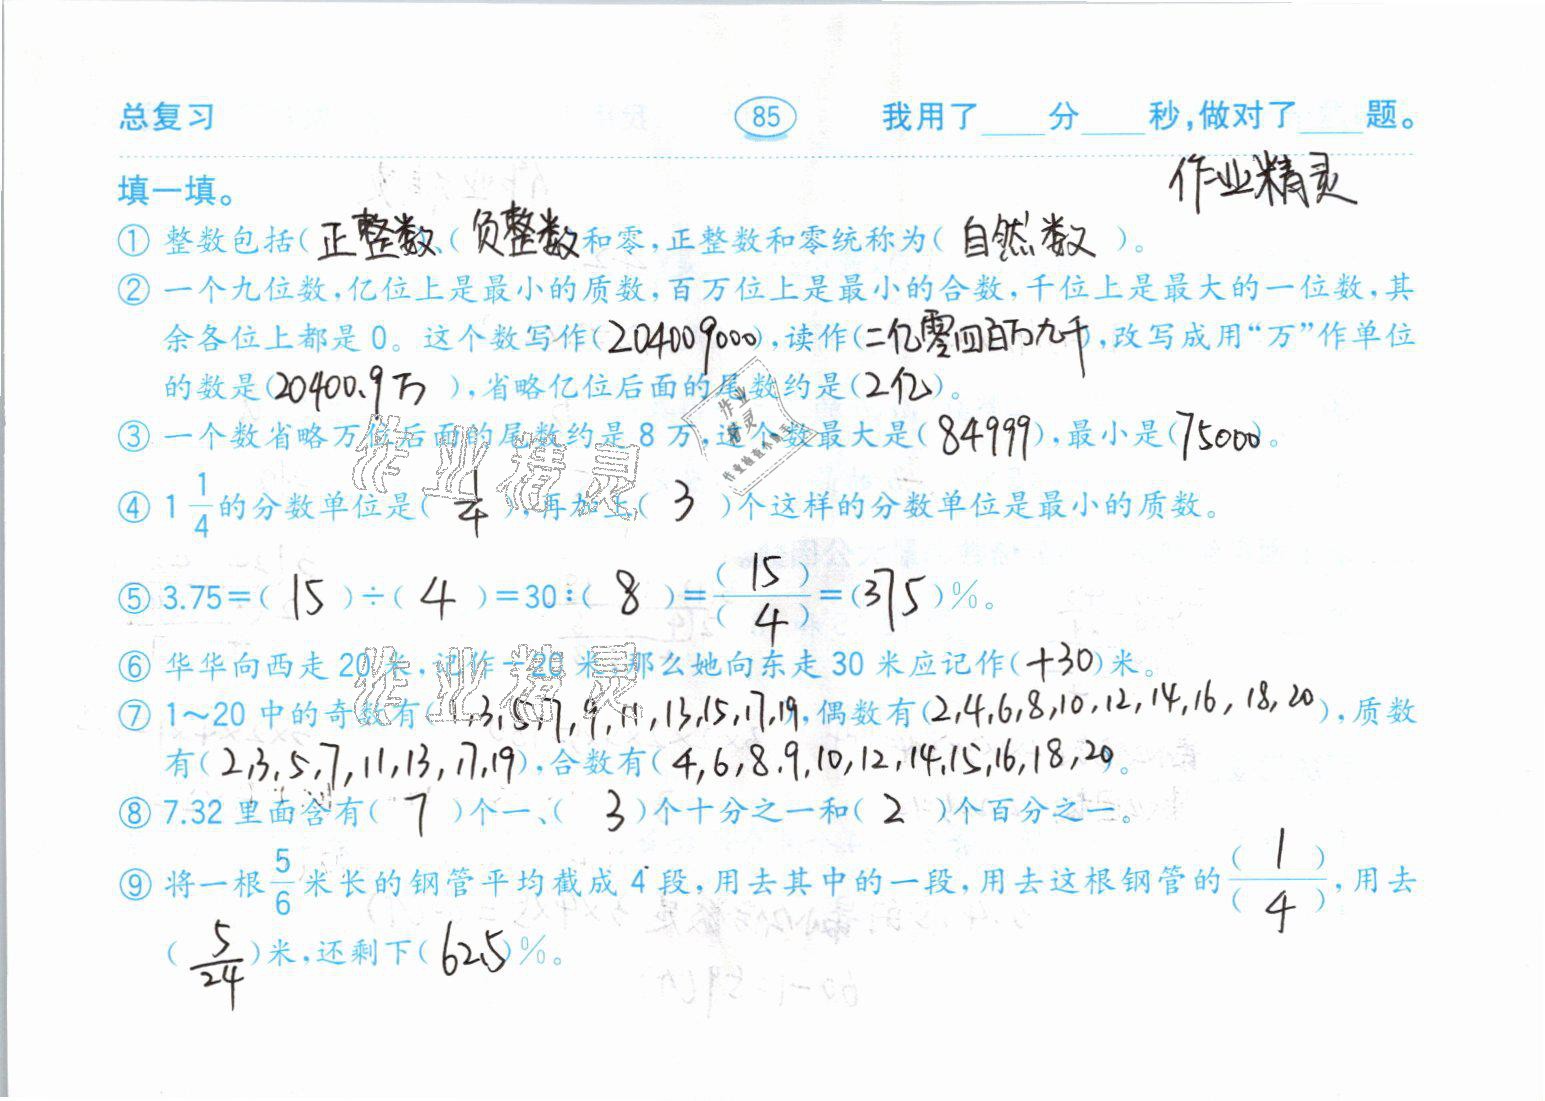 总复习 85 我用了____分____秒,做对了____题。
作业精灵
填一填。
① 整数包括(正整数)、(负整数)和零,正整数和零统称为(自然数)。
② 一个九位数,亿位上是最小的质数,百万位上是最小的合数,千位上是最大的一位数,其
余各位上都是0。这个数写作(204009000),读作(二亿零四百万九千),改写成用“万”作单位
的数是(20400.9万),省略亿位后面的尾数约是(2亿)。
③ 一个数省略万位后面的尾数约是8万,这个数最大是(84999),最小是(75000)。
④ 1 1/4 的分数单位是(1/4),再加上(3)个这样的分数单位是最小的质数。
⑤ 3.75=(15)÷(4)=30:(8)=(15)/(4)=(375)%。
⑥ 华华向西走20米,记作-20米,那么她向东走30米应记作(+30)米。
⑦ 1~20中的奇数有(1,3,5,7,9,11,13,15,17,19),偶数有(2,4,6,8,10,12,14,16,18,20),质数
有(2,3,5,7,11,13,17,19),合数有(4,6,8,9,10,12,14,15,16,18,20)。
⑧ 7.32里面含有(7)个一、(3)个十分之一和(2)个百分之一。
⑨ 将一根5/6米长的钢管平均截成4段,用去其中的一段,用去这根钢管的(1)/(4),用去
(5/24)米,还剩下(62.5)%。
作业精灵
作业精灵
作业
精灵